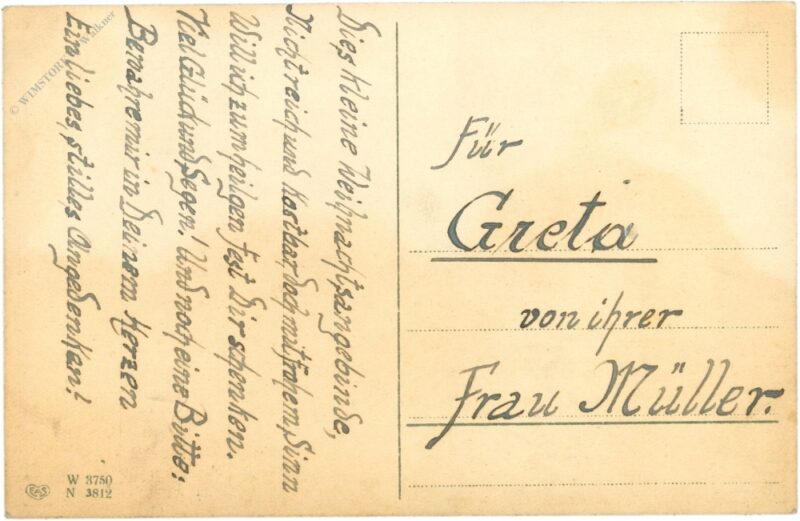 Dies kleine Weihnachtsangebinde,
Nicht reich und kostbar, doch mit frohem Sinn
Will ich zum heilgen Fest Dir schenken.
Viel Glück und Segen! Und noch eine Bitte:
Bewahre mir in Deinem Herzen
Ein liebes, stilles Angedenken!
Für
Greta
von ihrer
Frau Müller.
EAS
W 3750
N 3812
© Walkner